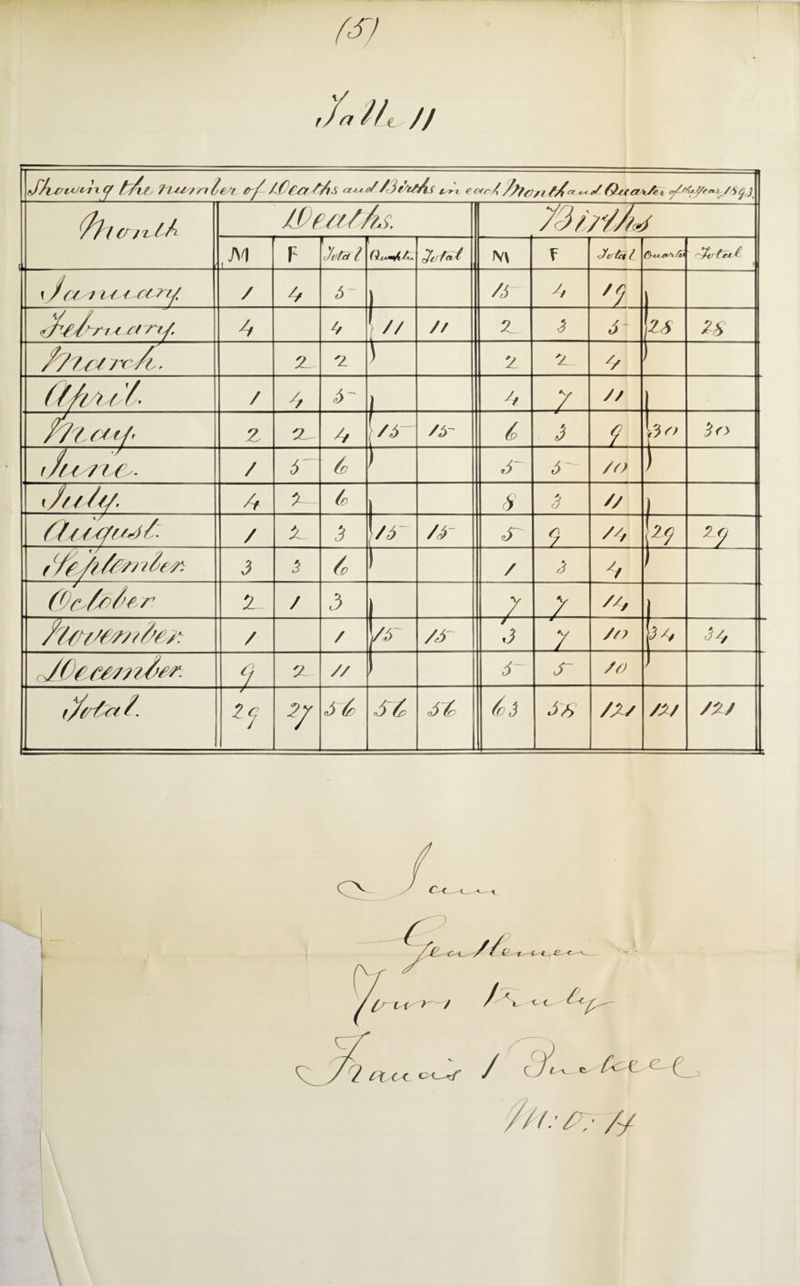 (5)
Table II
Showing the number of Deaths and Births in each Month and Quarter of the Year 1893
Month Deaths. Births
M F Total Quarter Total M F Total Quarter Total
January 1 4 5 15 4 19
February. 4 4 11 11 2 3 5 28 28
March. 2 2 2 2 4
April. 1 4 5 4 7 11
May. 2 2 4 15 15 6 3 9 30 30
June. 1 5 6 5 5 10
July. 4 2 6 8 3 11
August. 1 2 3 15 15 5 9 14 29 29
September. 3 3 6 1 3 4
October 2 1 3 7 7 14
November. 1 1 15 15 3 7 10 34 34
December. 9 2 11 5 5 10
Total. 29 27 56 56 56 63 58 121 121 121
I am
Gentlemen
Yours Truly
Francis J
M:O:H